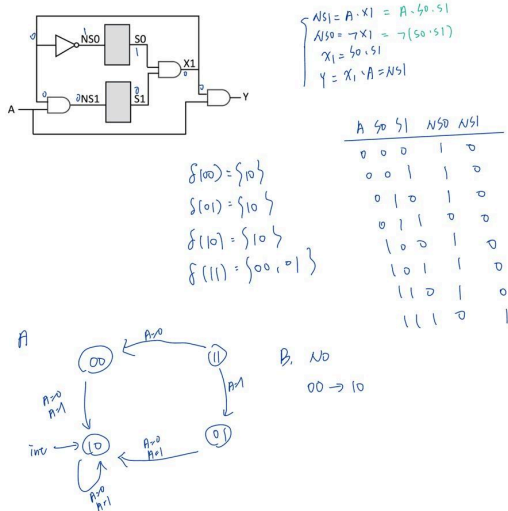 NS0 S0
1 1
0
X1
0 0
0 NS1 S1
0
A
Y
NS1 = A · X1 = A · S0 · S1
NS0 = ¬X1 = ¬(S0 · S1)
X1 = S0 · S1
Y = X1 · A = NS1
A S0 S1 NS0 NS1
0 0 0 1 0
0 0 1 1 0
0 1 0 1 0
0 1 1 0 0
1 0 0 1 0
1 0 1 1 0
1 1 0 1 0
1 1 1 0 1
δ(00) = {10}
δ(01) = {10}
δ(10) = {10}
δ(11) = {00, 01}
A
00
A=0
11
A=0
A=1
A=1
init
10
A=0
A=1
01
A=0
A=1
B. NO
00 → 10